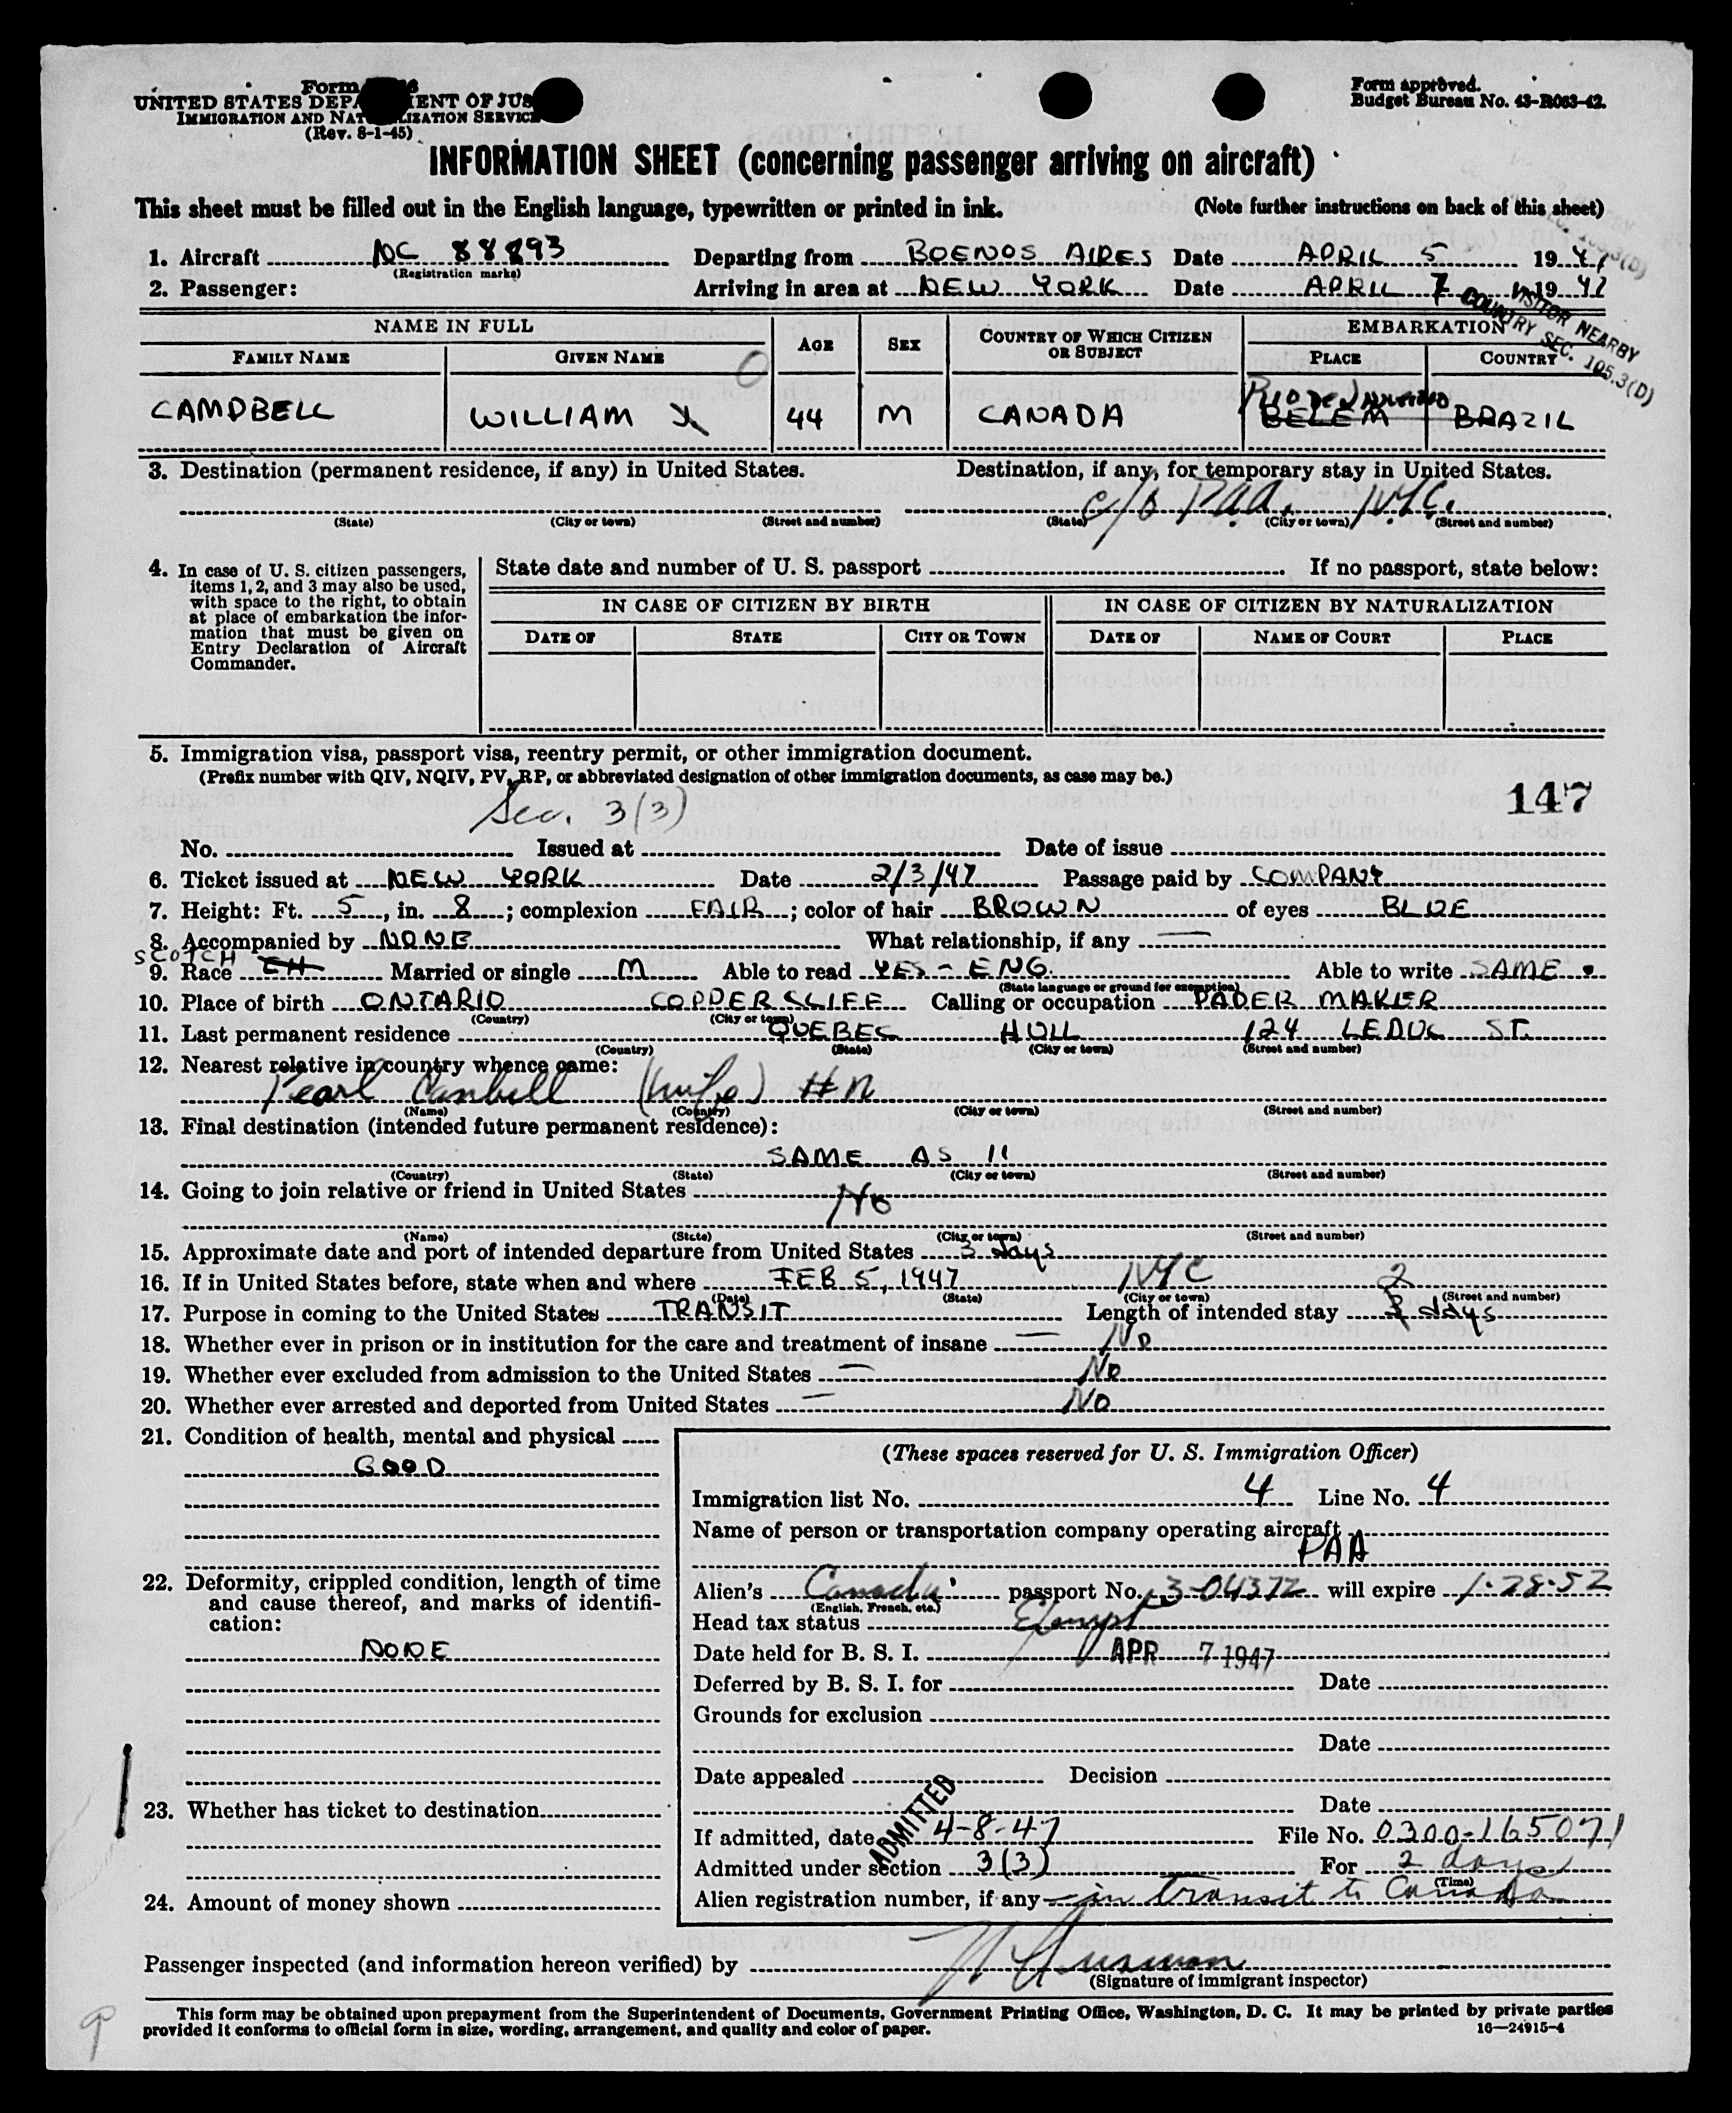 Form
UNITED STATES DEPARTMENT OF JUS
IMMIGRATION AND NATURALIZATION SERVICE
(Rev. 8-1-45)
Form approved.
Budget Bureau No. 43-R063-42.
INFORMATION SHEET (concerning passenger arriving on aircraft)
This sheet must be filled out in the English language, typewritten or printed in ink. (Note further instructions on back of this sheet)
1. Aircraft NC 88893 Departing from BOENOS AIRES Date APRIL 5 1947
(Registration marks)
2. Passenger: Arriving in area at NEW YORK Date APRIL 7 1947
VISITOR NEARBY
COUNTRY SEC. 105.3(D)
NAME IN FULL AGE SEX COUNTRY OF WHICH CITIZEN OR SUBJECT EMBARKATION
FAMILY NAME GIVEN NAME PLACE COUNTRY
CAMPBELL WILLIAM 44 M CANADA BELEM BRAZIL
3. Destination (permanent residence, if any) in United States. Destination, if any, for temporary stay in United States.
c/o P.A.A. N.Y.C.
(State) (City or town) (Street and number) (State) (City or town) (Street and number)
4. In case of U. S. citizen passengers, items 1, 2, and 3 may also be used, with space to the right, to obtain at place of embarkation the information that must be given on Entry Declaration of Aircraft Commander.
State date and number of U. S. passport If no passport, state below:
IN CASE OF CITIZEN BY BIRTH IN CASE OF CITIZEN BY NATURALIZATION
DATE OF STATE CITY OR TOWN DATE OF NAME OF COURT PLACE
5. Immigration visa, passport visa, reentry permit, or other immigration document.
(Prefix number with QIV, NQIV, PV, RP, or abbreviated designation of other immigration documents, as case may be.)
Sec. 3(3) 147
No. Issued at Date of issue
6. Ticket issued at NEW YORK Date 2/3/47 Passage paid by COMPANY
7. Height: Ft. 5, in. 8; complexion FAIR; color of hair BROWN of eyes BLUE
8. Accompanied by NONE What relationship, if any —
SCOTCH
9. Race Married or single M Able to read YES - ENG. Able to write SAME
(State language or ground for exemption)
10. Place of birth ONTARIO COPPER CLIFF Calling or occupation PAPER MAKER
(Country) (City or town)
11. Last permanent residence QUEBEC HULL 124 LEDUC ST.
(Country) (State) (City or town) (Street and number)
12. Nearest relative in country whence came:
Pearl Cambell (wife) #11
(Name) (Country) (City or town) (Street and number)
13. Final destination (intended future permanent residence):
SAME AS 11
(Country) (State) (City or town) (Street and number)
14. Going to join relative or friend in United States No
(Name) (State) (City or town) (Street and number)
15. Approximate date and port of intended departure from United States 3 days
16. If in United States before, state when and where FEB 5, 1947 NYC
(Date) (State) (City or town) (Street and number)
17. Purpose in coming to the United States TRANSIT Length of intended stay 2 days
18. Whether ever in prison or in institution for the care and treatment of insane — No
19. Whether ever excluded from admission to the United States — No
20. Whether ever arrested and deported from United States — No
21. Condition of health, mental and physical
GOOD
22. Deformity, crippled condition, length of time and cause thereof, and marks of identification:
NONE
23. Whether has ticket to destination
24. Amount of money shown
(These spaces reserved for U. S. Immigration Officer)
Immigration list No. 4 Line No. 4
Name of person or transportation company operating aircraft
PAA
Alien's Canada passport No. 3-04372 will expire 1-28-52
(English, French, etc.)
Head tax status Exempt
Date held for B. S. I. APR 7 1947
Deferred by B. S. I. for Date
Grounds for exclusion
Date
Date appealed Decision
Date
ADMITTED
If admitted, date 4-8-47 File No. 0300-165071
Admitted under section 3(3) For 2 days
(Time)
Alien registration number, if any — in transit to Canada
Passenger inspected (and information hereon verified) by
(Signature of immigrant inspector)
This form may be obtained upon prepayment from the Superintendent of Documents, Government Printing Office, Washington, D. C. It may be printed by private parties
provided it conforms to official form in size, wording, arrangement, and quality and color of paper. 16—24915-4